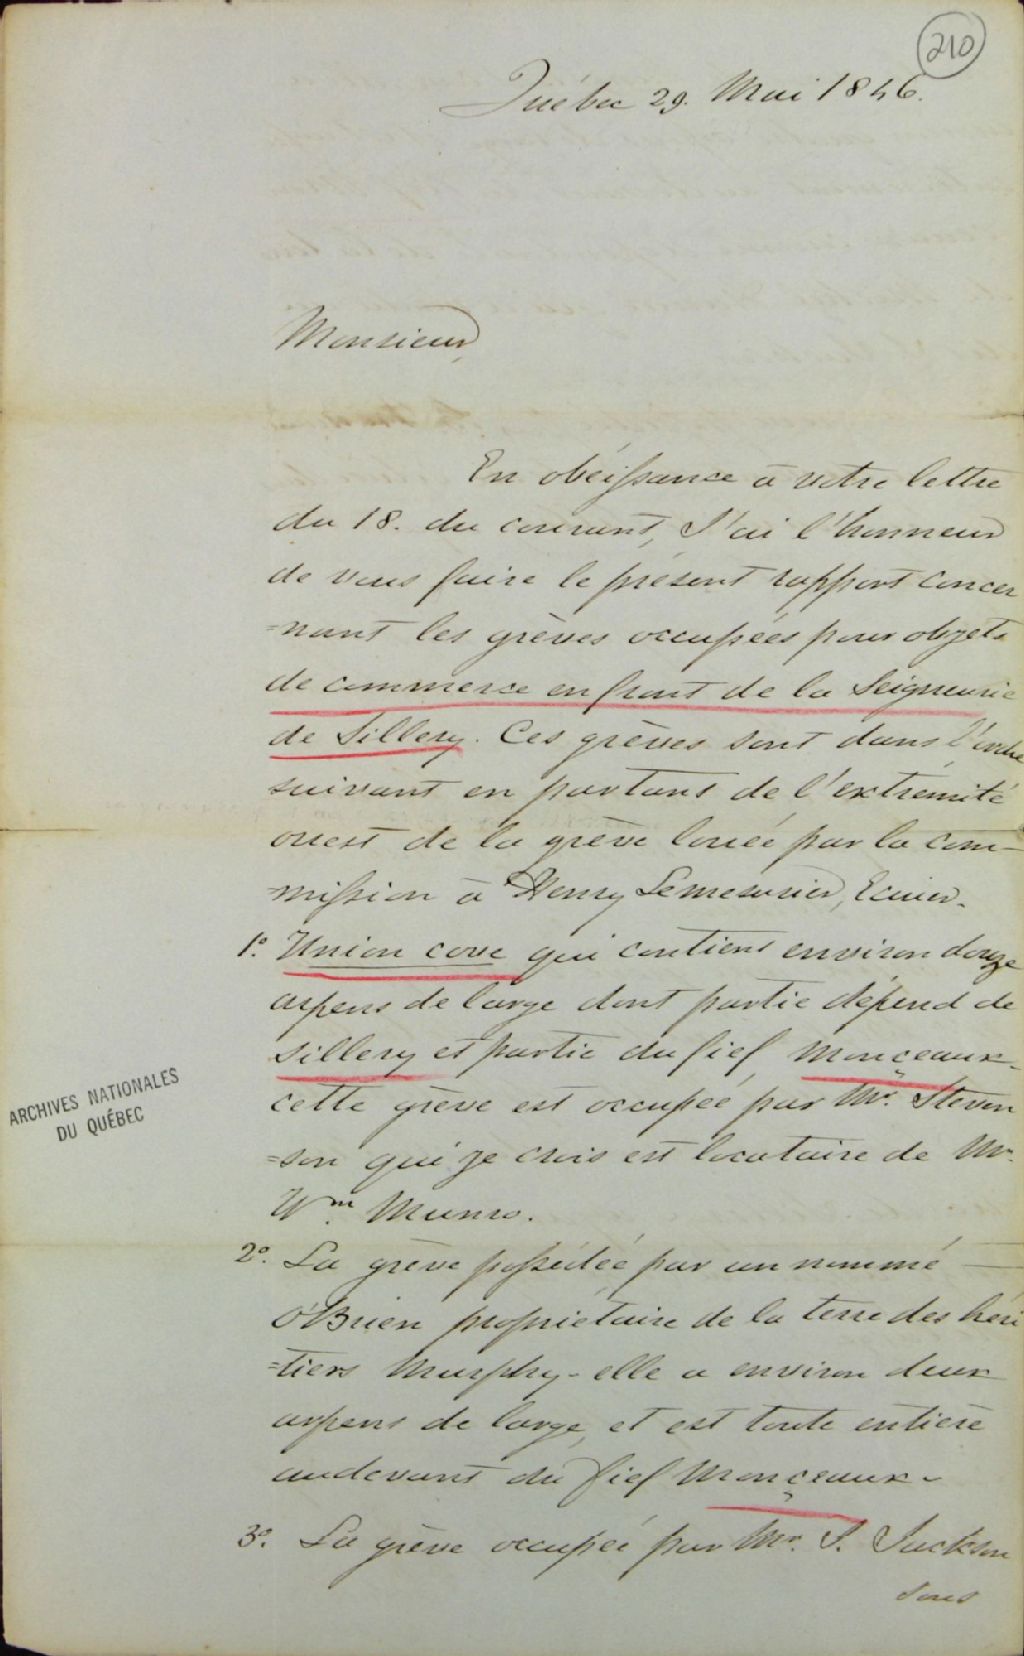 210
Québec 29. Mai 1846.
Monsieur,
En obéissance à votre lettre
du 18. du courant, J'ai l'honneur
de vous faire le présent rapport concer
=nant les grèves occupées pour objets
de commerce en front de la Seigneurie
de Sillery. Ces grèves sont dans l'ordre
suivant en partant de l'extremité
ouest de la grève louée par la com-
-mission à Henry Lemesurier, Ecuier.
1º. Union cove qui contient environ douze
arpens de large dont partie dépend de
Sillery et partie du fief Monceaux.
cette grève est occupée par Mr. Steven
=son qui je crois est locataire de Mr.
Wm. Munro.
2º. La grève possédée par un nommé
O'Brien propriétaire de la terre des heri
=tiers Murphy - elle a environ deux
arpens de large, et est toute entière
audevant du fief Monceaux -
3º. La grève occupée par Mr. J. Jackson
sous
ARCHIVES NATIONALES
DU QUÉBEC